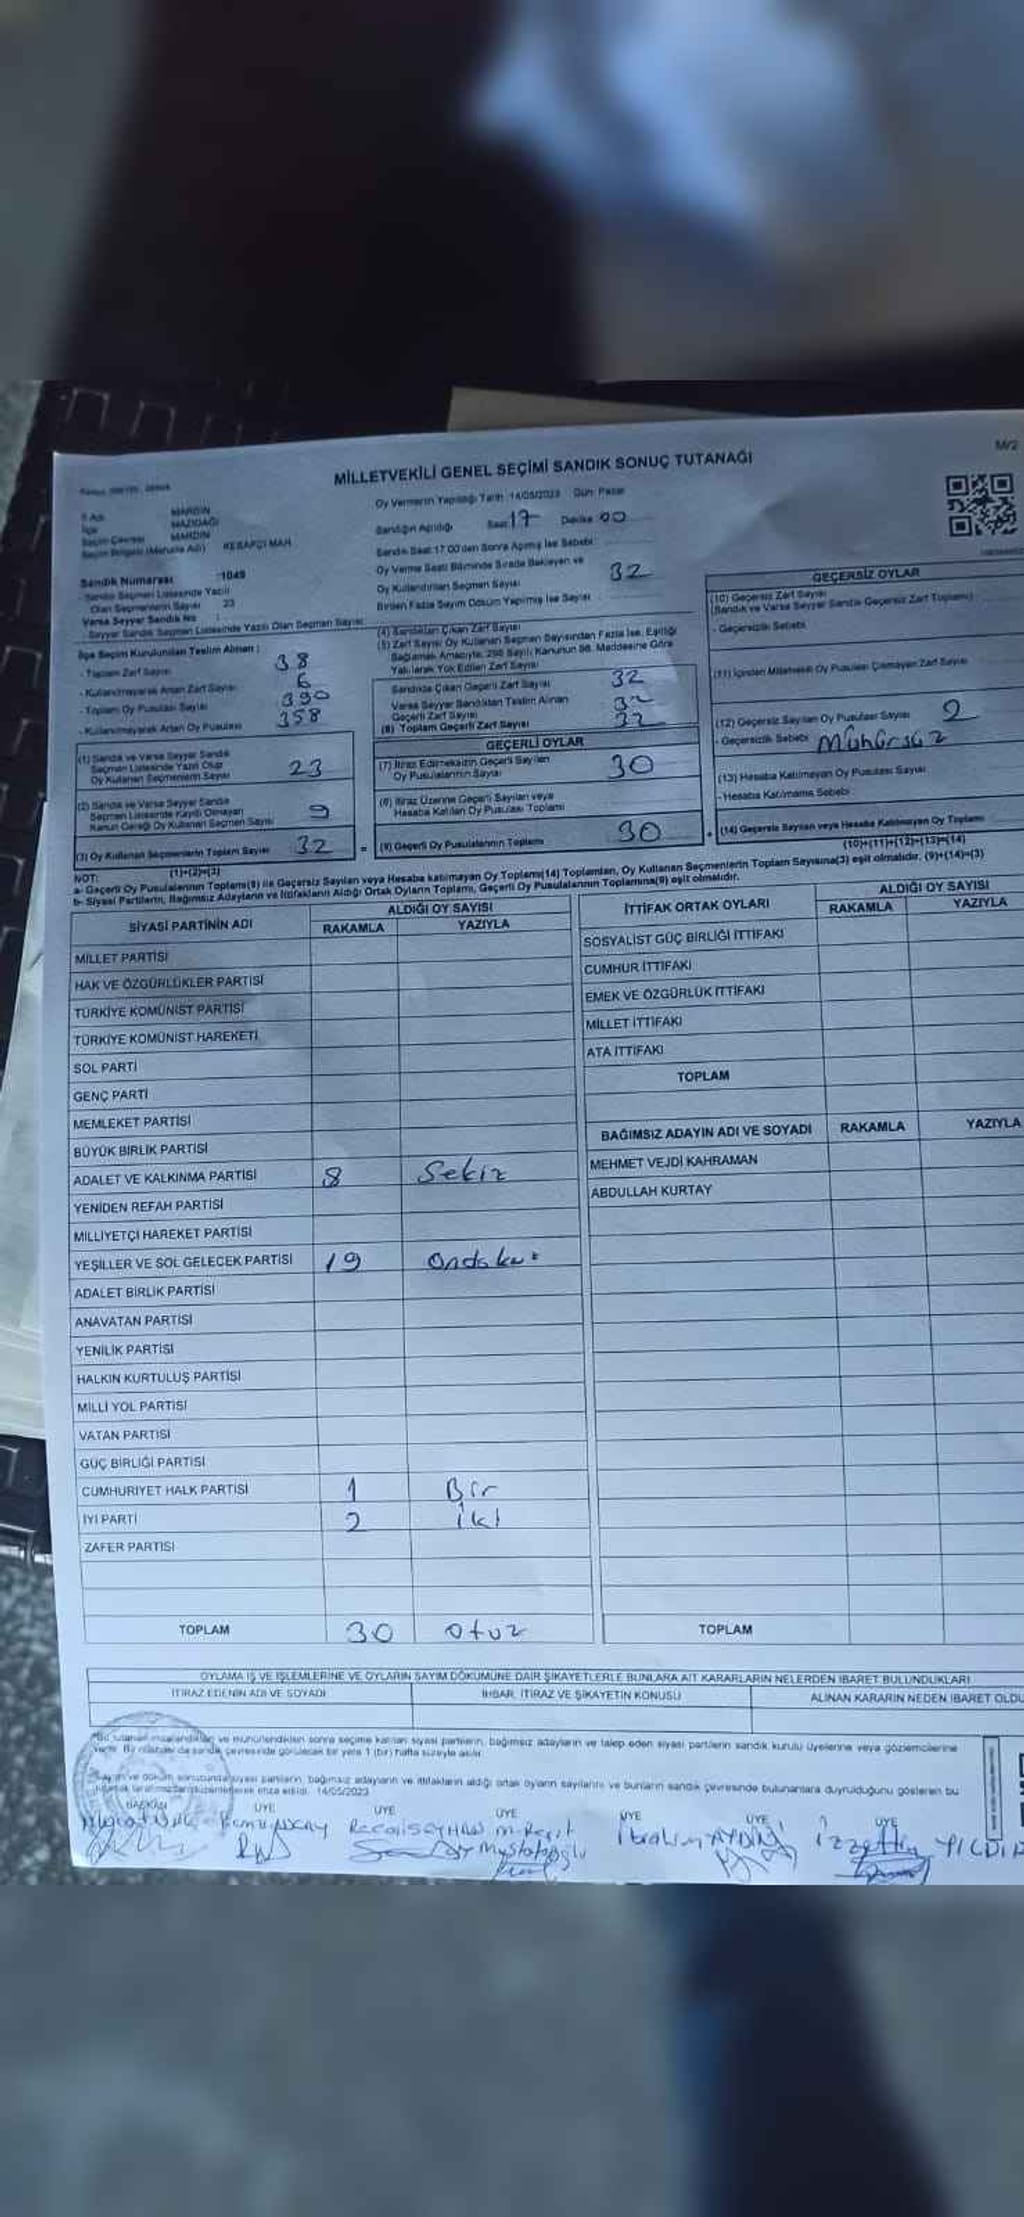 M/2
MİLLETVEKİLİ GENEL SEÇİMİ SANDIK SONUÇ TUTANAĞI
Oy Vermenin Yapıldığı Tarih 14/05/2023 Gün: Pazar
İl Adı MARDİN
İlçe MAZIDAĞI
Seçim Çevresi MARDİN
Seçim Bölgesi (Mahalle Adı) KEBAPÇI MAH
Sandığın Açıldığı Saat 17 Dakika 00
Sandık Saat 17:00'den Sonra Açılmış İse Sebebi
Oy Verme Saati Bitiminde Sırada Bekleyen ve
Oy Kullandırılan Seçmen Sayısı 32
Birden Fazla Sayım Döküm Yapılmış İse Sayısı
Sandık Numarası :1049
- Sandık Seçmen Listesinde Yazılı
Olan Seçmenlerin Sayısı 23
Varsa Seyyar Sandık No
- Seyyar Sandık Seçmen Listesinde Yazılı Olan Seçmen Sayısı
İlçe Seçim Kurulundan Teslim Alınan :
- Toplam Zarf Sayısı 38
- Kullanılmayarak Artan Zarf Sayısı 6
- Toplam Oy Pusulası Sayısı 390
- Kullanılmayarak Artan Oy Pusulası 358
(1) Sandık ve Varsa Seyyar Sandık
Seçmen Listesinde Yazılı Olup
Oy Kullanan Seçmenlerin Sayısı 23
(2) Sandık ve Varsa Seyyar Sandık
Seçmen Listesinde Kayıtlı Olmayan
Kanun Gereği Oy Kullanan Seçmen Sayısı 9
(3) Oy Kullanan Seçmenlerin Toplam Sayısı 32
(1)+(2)=(3)
(4) Sandıktan Çıkan Zarf Sayısı
(5) Zarf Sayısı Oy Kullanan Seçmen Sayısından Fazla İse, Eşitliği
Sağlamak Amacıyla, 298 Sayılı Kanunun 98. Maddesine Göre
Yakılarak Yok Edilen Zarf Sayısı
Sandıkta Çıkan Geçerli Zarf Sayısı 32
Varsa Seyyar Sandıktan Teslim Alınan
Geçerli Zarf Sayısı 32
(6) Toplam Geçerli Zarf Sayısı 32
GEÇERLİ OYLAR
(7) İtiraz Edilmeksizin Geçerli Sayılan
Oy Pusulalarının Sayısı 30
(8) İtiraz Üzerine Geçerli Sayılan veya
Hesaba Katılan Oy Pusulası Toplamı
= (9) Geçerli Oy Pusulalarının Toplamı 30
GEÇERSİZ OYLAR
(10) Geçersiz Zarf Sayısı
(Sandık ve Varsa Seyyar Sandık Geçersiz Zarf Toplamı)
- Geçersizlik Sebebi
(11) İçinden Milletvekili Oy Pusulası Çıkmayan Zarf Sayısı
(12) Geçersiz Sayılan Oy Pusulası Sayısı 2
- Geçersizlik Sebebi Mühürsüz
(13) Hesaba Katılmayan Oy Pusulası Sayısı
- Hesaba Katılmama Sebebi
+ (14) Geçersiz Sayılan veya Hesaba Katılmayan Oy Toplamı
(10)+(11)+(12)+(13)=(14)
NOT:
a- Geçerli Oy Pusulalarının Toplamı(9) ile Geçersiz Sayılan veya Hesaba katılmayan Oy Toplamı(14) Toplamları, Oy Kullanan Seçmenlerin Toplam Sayısına(3) eşit olmalıdır. (9)+(14)=(3)
b- Siyasi Partilerin, Bağımsız Adayların ve İttifakların Aldığı Ortak Oyların Toplamı, Geçerli Oy Pusulalarının Toplamına(9) eşit olmalıdır.
SİYASİ PARTİNİN ADI
ALDIĞI OY SAYISI
RAKAMLA YAZIYLA
MİLLET PARTİSİ
HAK VE ÖZGÜRLÜKLER PARTİSİ
TÜRKİYE KOMÜNİST PARTİSİ
TÜRKİYE KOMÜNİST HAREKETİ
SOL PARTİ
GENÇ PARTİ
MEMLEKET PARTİSİ
BÜYÜK BİRLİK PARTİSİ
ADALET VE KALKINMA PARTİSİ 8 Sekiz
YENİDEN REFAH PARTİSİ
MİLLİYETÇİ HAREKET PARTİSİ
YEŞİLLER VE SOL GELECEK PARTİSİ 19
ADALET BİRLİK PARTİSİ
ANAVATAN PARTİSİ
YENİLİK PARTİSİ
HALKIN KURTULUŞ PARTİSİ
MİLLİ YOL PARTİSİ
VATAN PARTİSİ
GÜÇ BİRLİĞİ PARTİSİ
CUMHURİYET HALK PARTİSİ 1 Bir
İYİ PARTİ 2 iki
ZAFER PARTİSİ
TOPLAM 30 otuz
İTTİFAK ORTAK OYLARI
ALDIĞI OY SAYISI
RAKAMLA YAZIYLA
SOSYALİST GÜÇ BİRLİĞİ İTTİFAKI
CUMHUR İTTİFAKI
EMEK VE ÖZGÜRLÜK İTTİFAKI
MİLLET İTTİFAKI
ATA İTTİFAKI
TOPLAM
BAĞIMSIZ ADAYIN ADI VE SOYADI RAKAMLA YAZIYLA
MEHMET VEJDİ KAHRAMAN
ABDULLAH KURTAY
TOPLAM
OYLAMA İŞ VE İŞLEMLERİNE VE OYLARIN SAYIM DÖKÜMÜNE DAİR ŞİKAYETLERLE BUNLARA AİT KARARLARIN NELERDEN İBARET BULUNDUKLARI
İTİRAZ EDENİN ADI VE SOYADI İHBAR, İTİRAZ VE ŞİKAYETİN KONUSU ALINAN KARARIN NEDEN İBARET OLDU
ve mühürlendikten sonra seçime katılan siyasi partilerin, bağımsız adayların ve talep eden siyasi partilerin sandık kurulu üyelerine veya gözlemcilerine
verilir. Bu tutanak da sandık çevresinde görülecek bir yere 1 (bir) hafta süreyle asılır.
Sayım ve döküm sonucunda siyasi partilerin, bağımsız adayların ve ittifakların aldığı ortak oyların sayılarını ve bunların sandık çevresinde bulunanlara duyurulduğunu gösteren bu
imza edildi. 14/05/2023
BAŞKAN ÜYE ÜYE ÜYE ÜYE ÜYE ÜYE
İbrahim AYDIN
İzzettin YILDIR